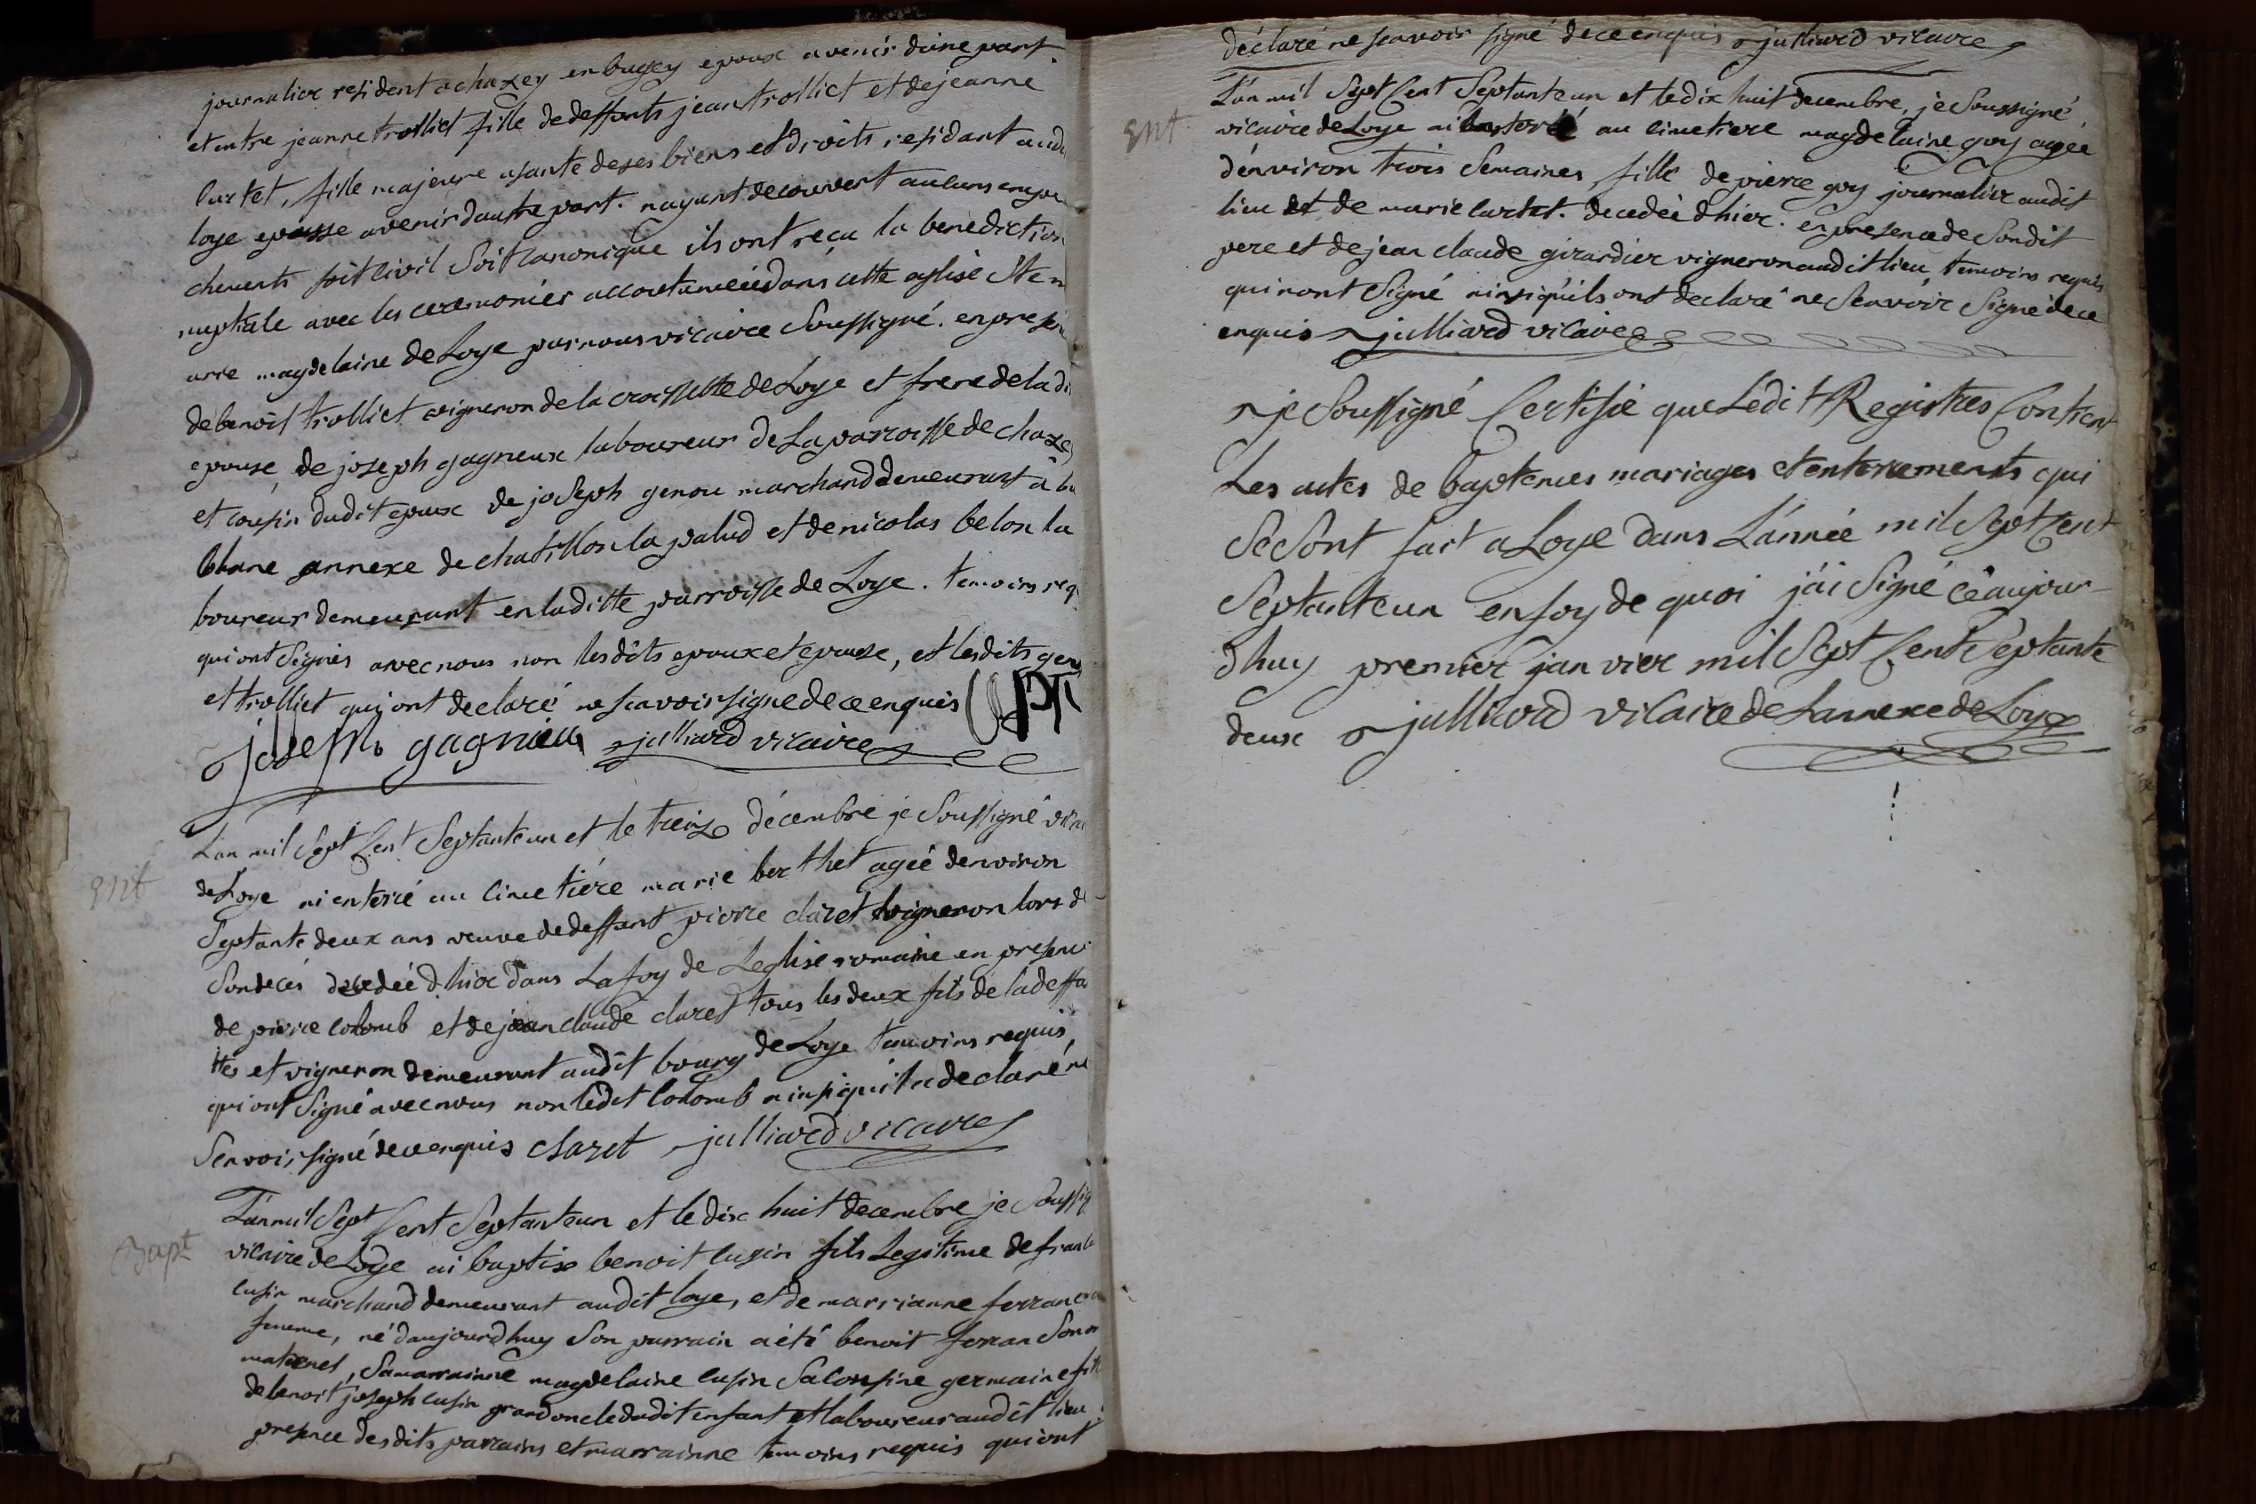 journalier residant a chazey en bugey epoux avenir d'une part
et entre jeanne trolliet fille de deffunts jean trolliet et de jeanne
curtet, fille majeure usante de ses biens et droits residant aud
loye epouse avenir d'autre part. nayant decouvert aucuns enpe
chements soit civil Soit canonique ils ont recu la benediction
nuptiale avec les ceremonies accoutumeés dans cette eglise Ste m
arie magdelaine de Loye par nous vicaire Soussigné. en presen
de benoit trolliet vigneron de la croisette de Loye et frere de la d
epouse, de joseph gagneux laboureur de La parroisse de chazey
et cousin dudit epoux de joseph genou marchand demeurant a
blanne annexe de chatillon la palud et de nicolas belon la
boureur demeurant en la ditte parroisse de Loye. temoins req
qui ont Signés avec nous non les dits epoux et epouse, et les dits gen
et trolliet qui ont declaré ne scavoir signe de ce enquis
joseph gagnieux julliard vicaire
L'an mil Sept Cent Septante un et le treize décembre je Soussigné vica
Ent
de Loye ai enterré au cimetiére marie berthet ageé denviron
Septante deux ans veuve de deffunt pierre claret vigneron lors d
Son decés decedeé d'hier dans La foy de L'eglise romaine en presence
de pierre colomb et de jean claude claret tous les deux fils de la deffu
ttes et vigneron demeurant audit bourg de Loye temoins requis,
qui ont Signé avec nous non ledit Colomb ainsi quil a declaré ne
Scavoir signé de ce enquis claret julliard vicaire
L'an mil Sept Cent Septante un et le dix huit decembre je Soussig
Bapt
vicaire de Loye ai baptise benoit cusin fils Legitime de franc
cusin marchand demeurant audit loye, et de marrianne ferran
femme, né d'aujourdhuy Son parrain a été benoit ferran Son
maternel, Sa marrainne magdelaine cusin Sa Cousine germaine fil
de benoit joseph cusin grand oncle dudit enfant et laboureur audit lieu
presence des dits parrains et marrainne temoins requis qui ont
déclaré ne scavoir signé de ce enquis julliard vicaire
L'an mil Sept Cent Septante un et le dix huit decembre, je Soussigné
Ent
vicaire de Loye ai enterré au cimetiere magdelaine goy ageé
d'environ trois Semaines, fille de pierre goy journalier audit
lieu et de marie curtet. decedeé d'hier. en presence de Son dit
pere et de jean claude girardier vigneron audit lieu temoins requis
qui nont Signé ainsi qu'ils ont declaré ne Scavoir Signe de ce
enquis julliard vicaire
je Soussigné Certifie que Ledit Registres Contient
Les actes de baptemes mariages et enterrements qui
Se Sont fait a Loye dans L'année mil Sept Cent
Septante un en foy de quoi j'ai Signé ce aujour
dhuy premier janvier mil Sept Cent Septante
deux julliard vicaire de Lannexe de Loye